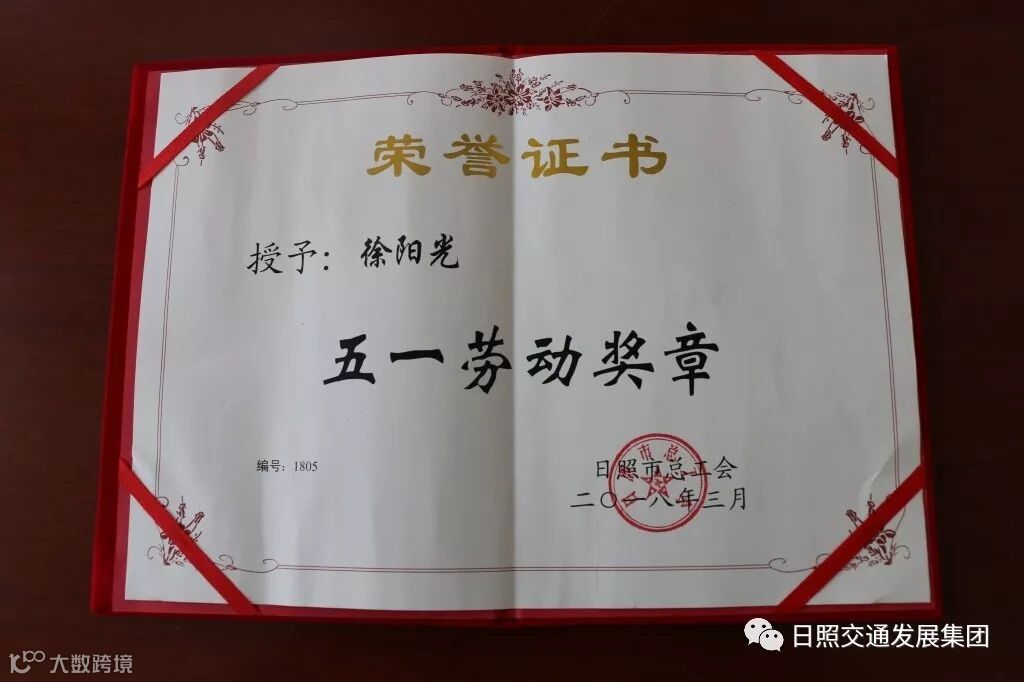 荣誉证书
授予：徐阳光
五一劳动奖章
编号：1805
日照市总工会
二〇一八年三月
日照交通发展集团
大数跨境